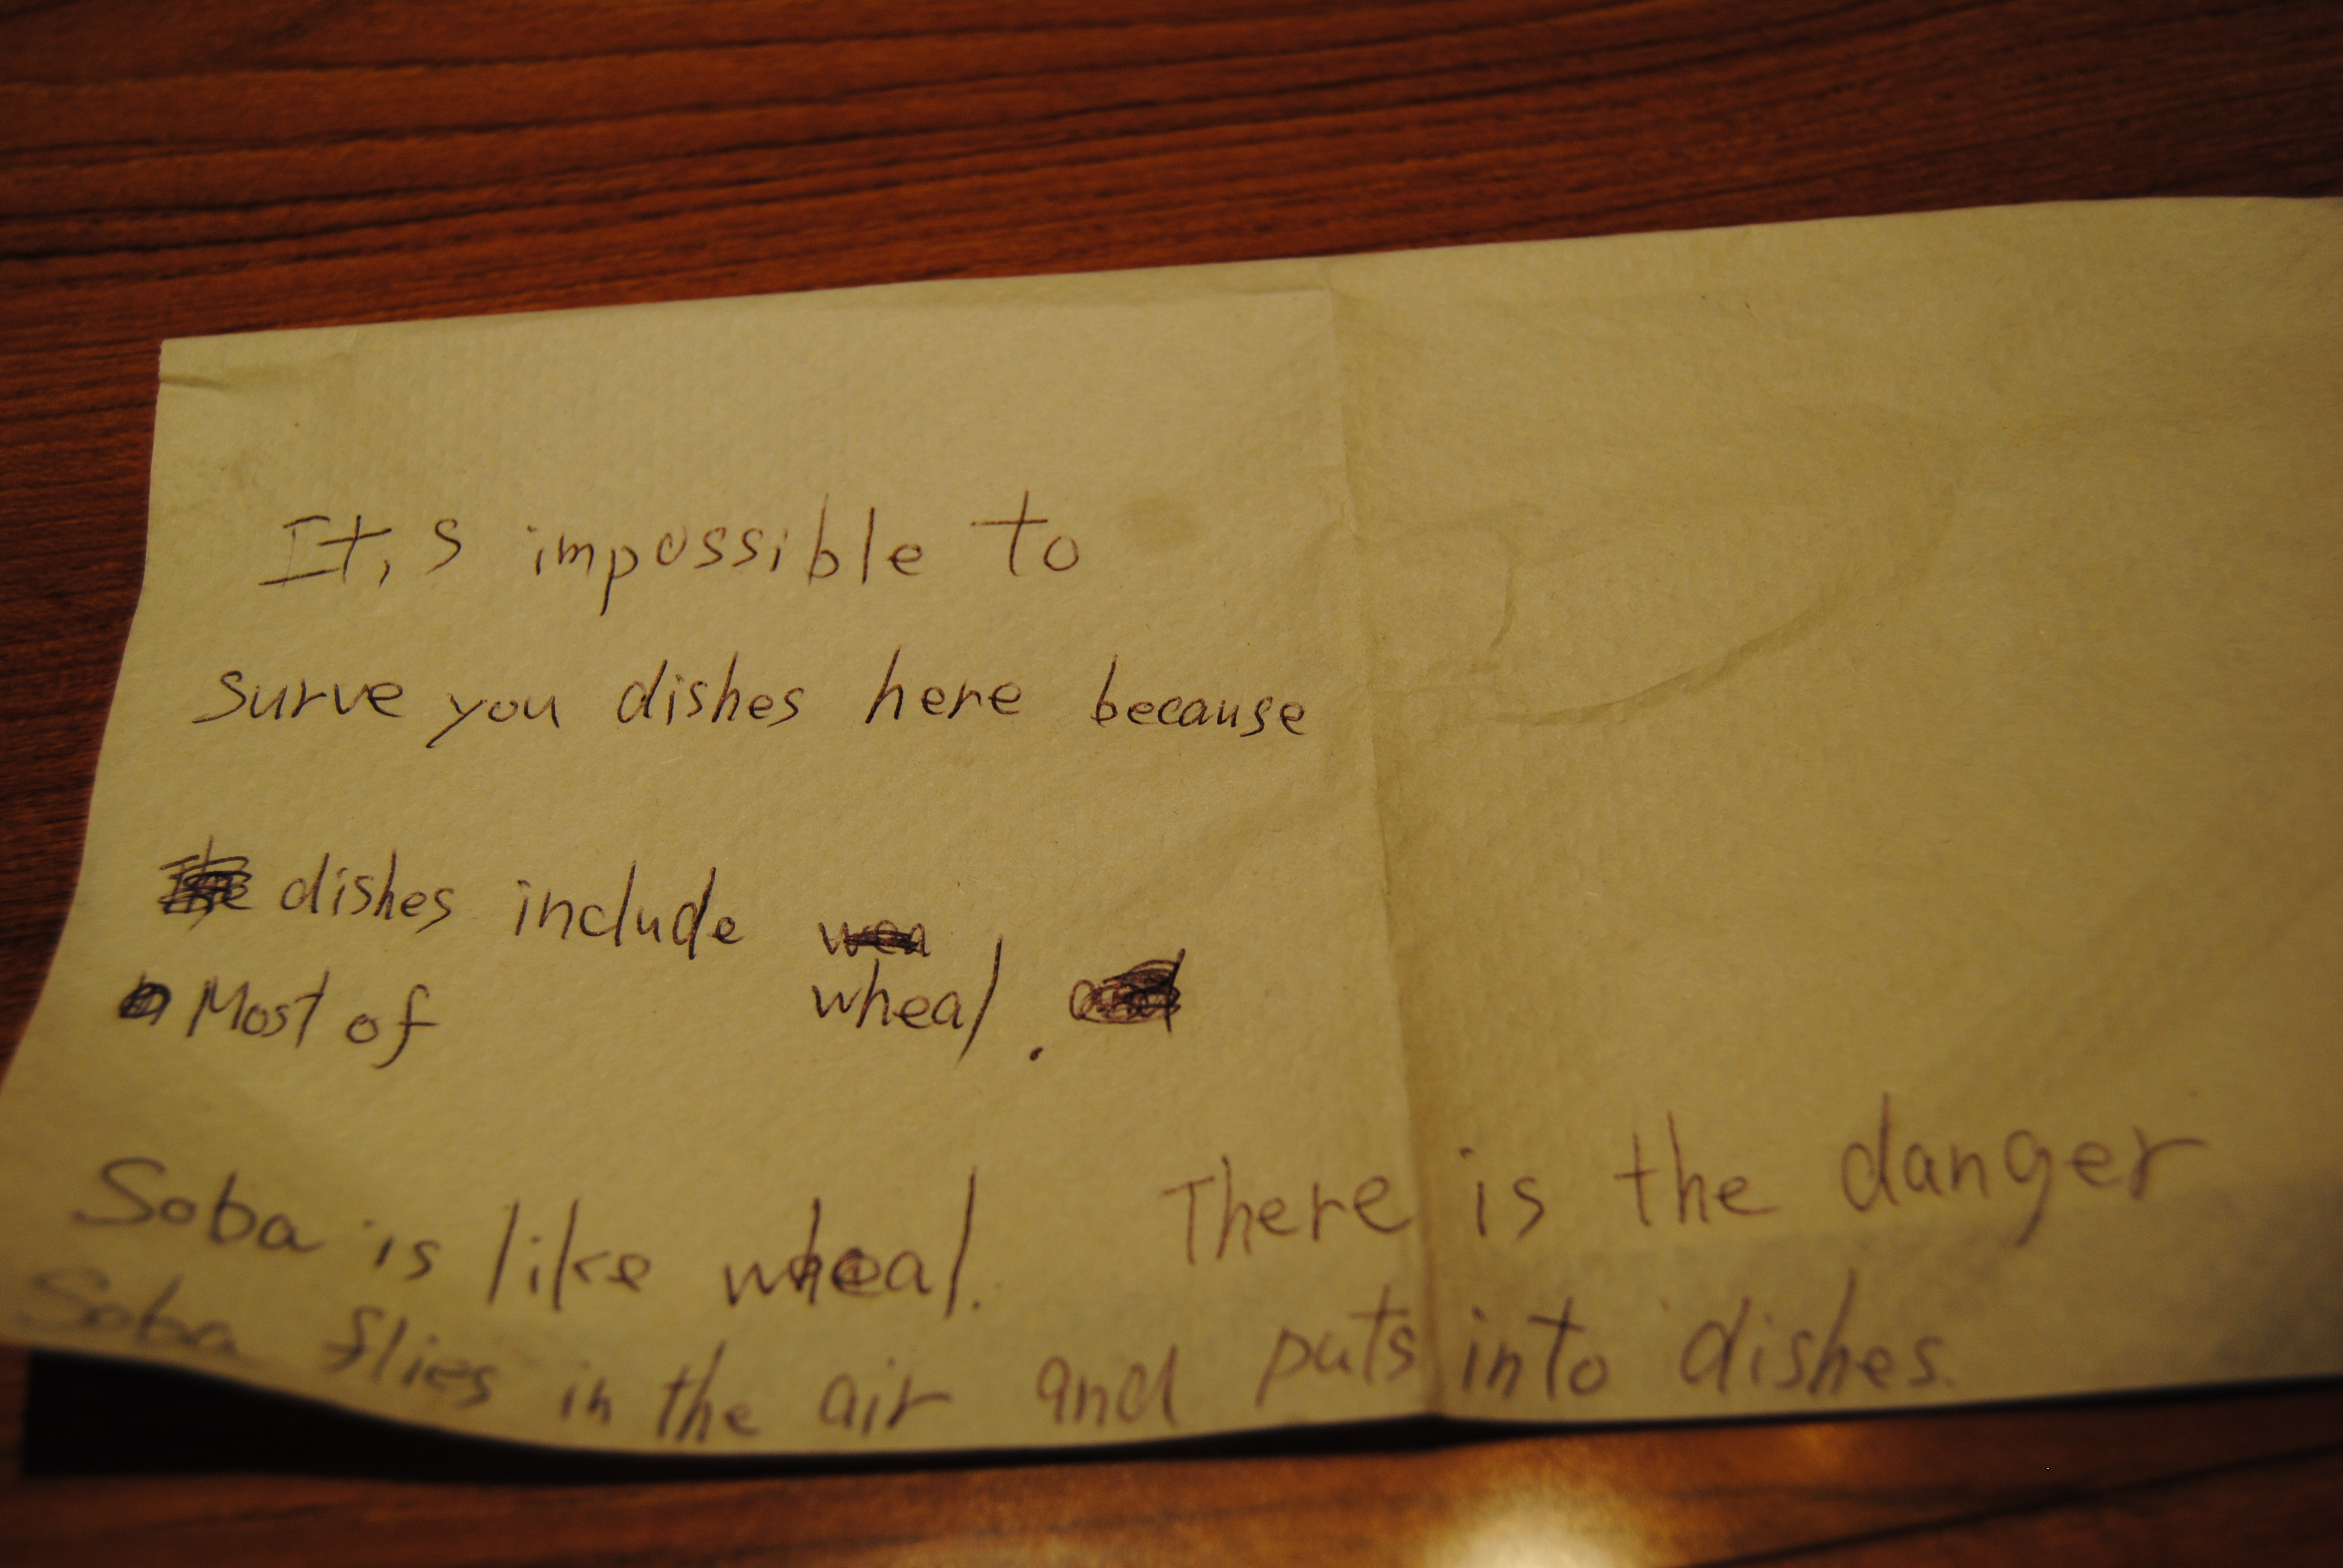 It,s impossible to
surve you dishes here because
dishes include
Most of wheal.
Soba is like wheal. There is the danger
Soba flies in the air and puts into dishes.